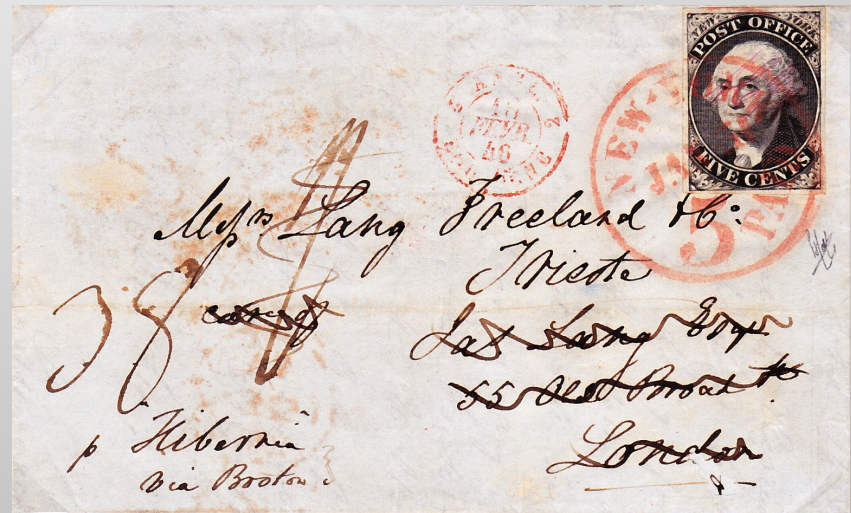 POST OFFICE
FIVE CENTS
NEW-
JA
5
PA
18
FEVR
46
2
Messrs Lang Freeland & Co:
Trieste
care of
Jas Lang Esqr
55 Old Broad St
London
38
p Hibernia
via Boston